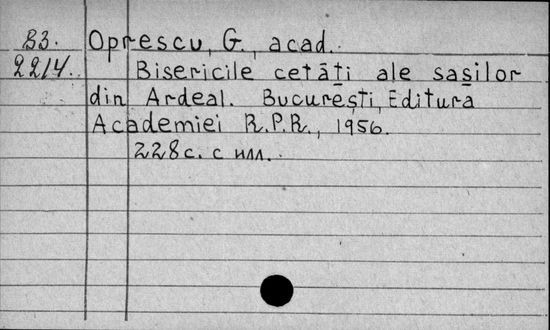 ВЗ. Oprescu, G., acad.
2214. Bisericile cetăți ale sașilor
din Ardeal. București, Editura
Academiei R.P.R., 1956.
228 с. с илл.